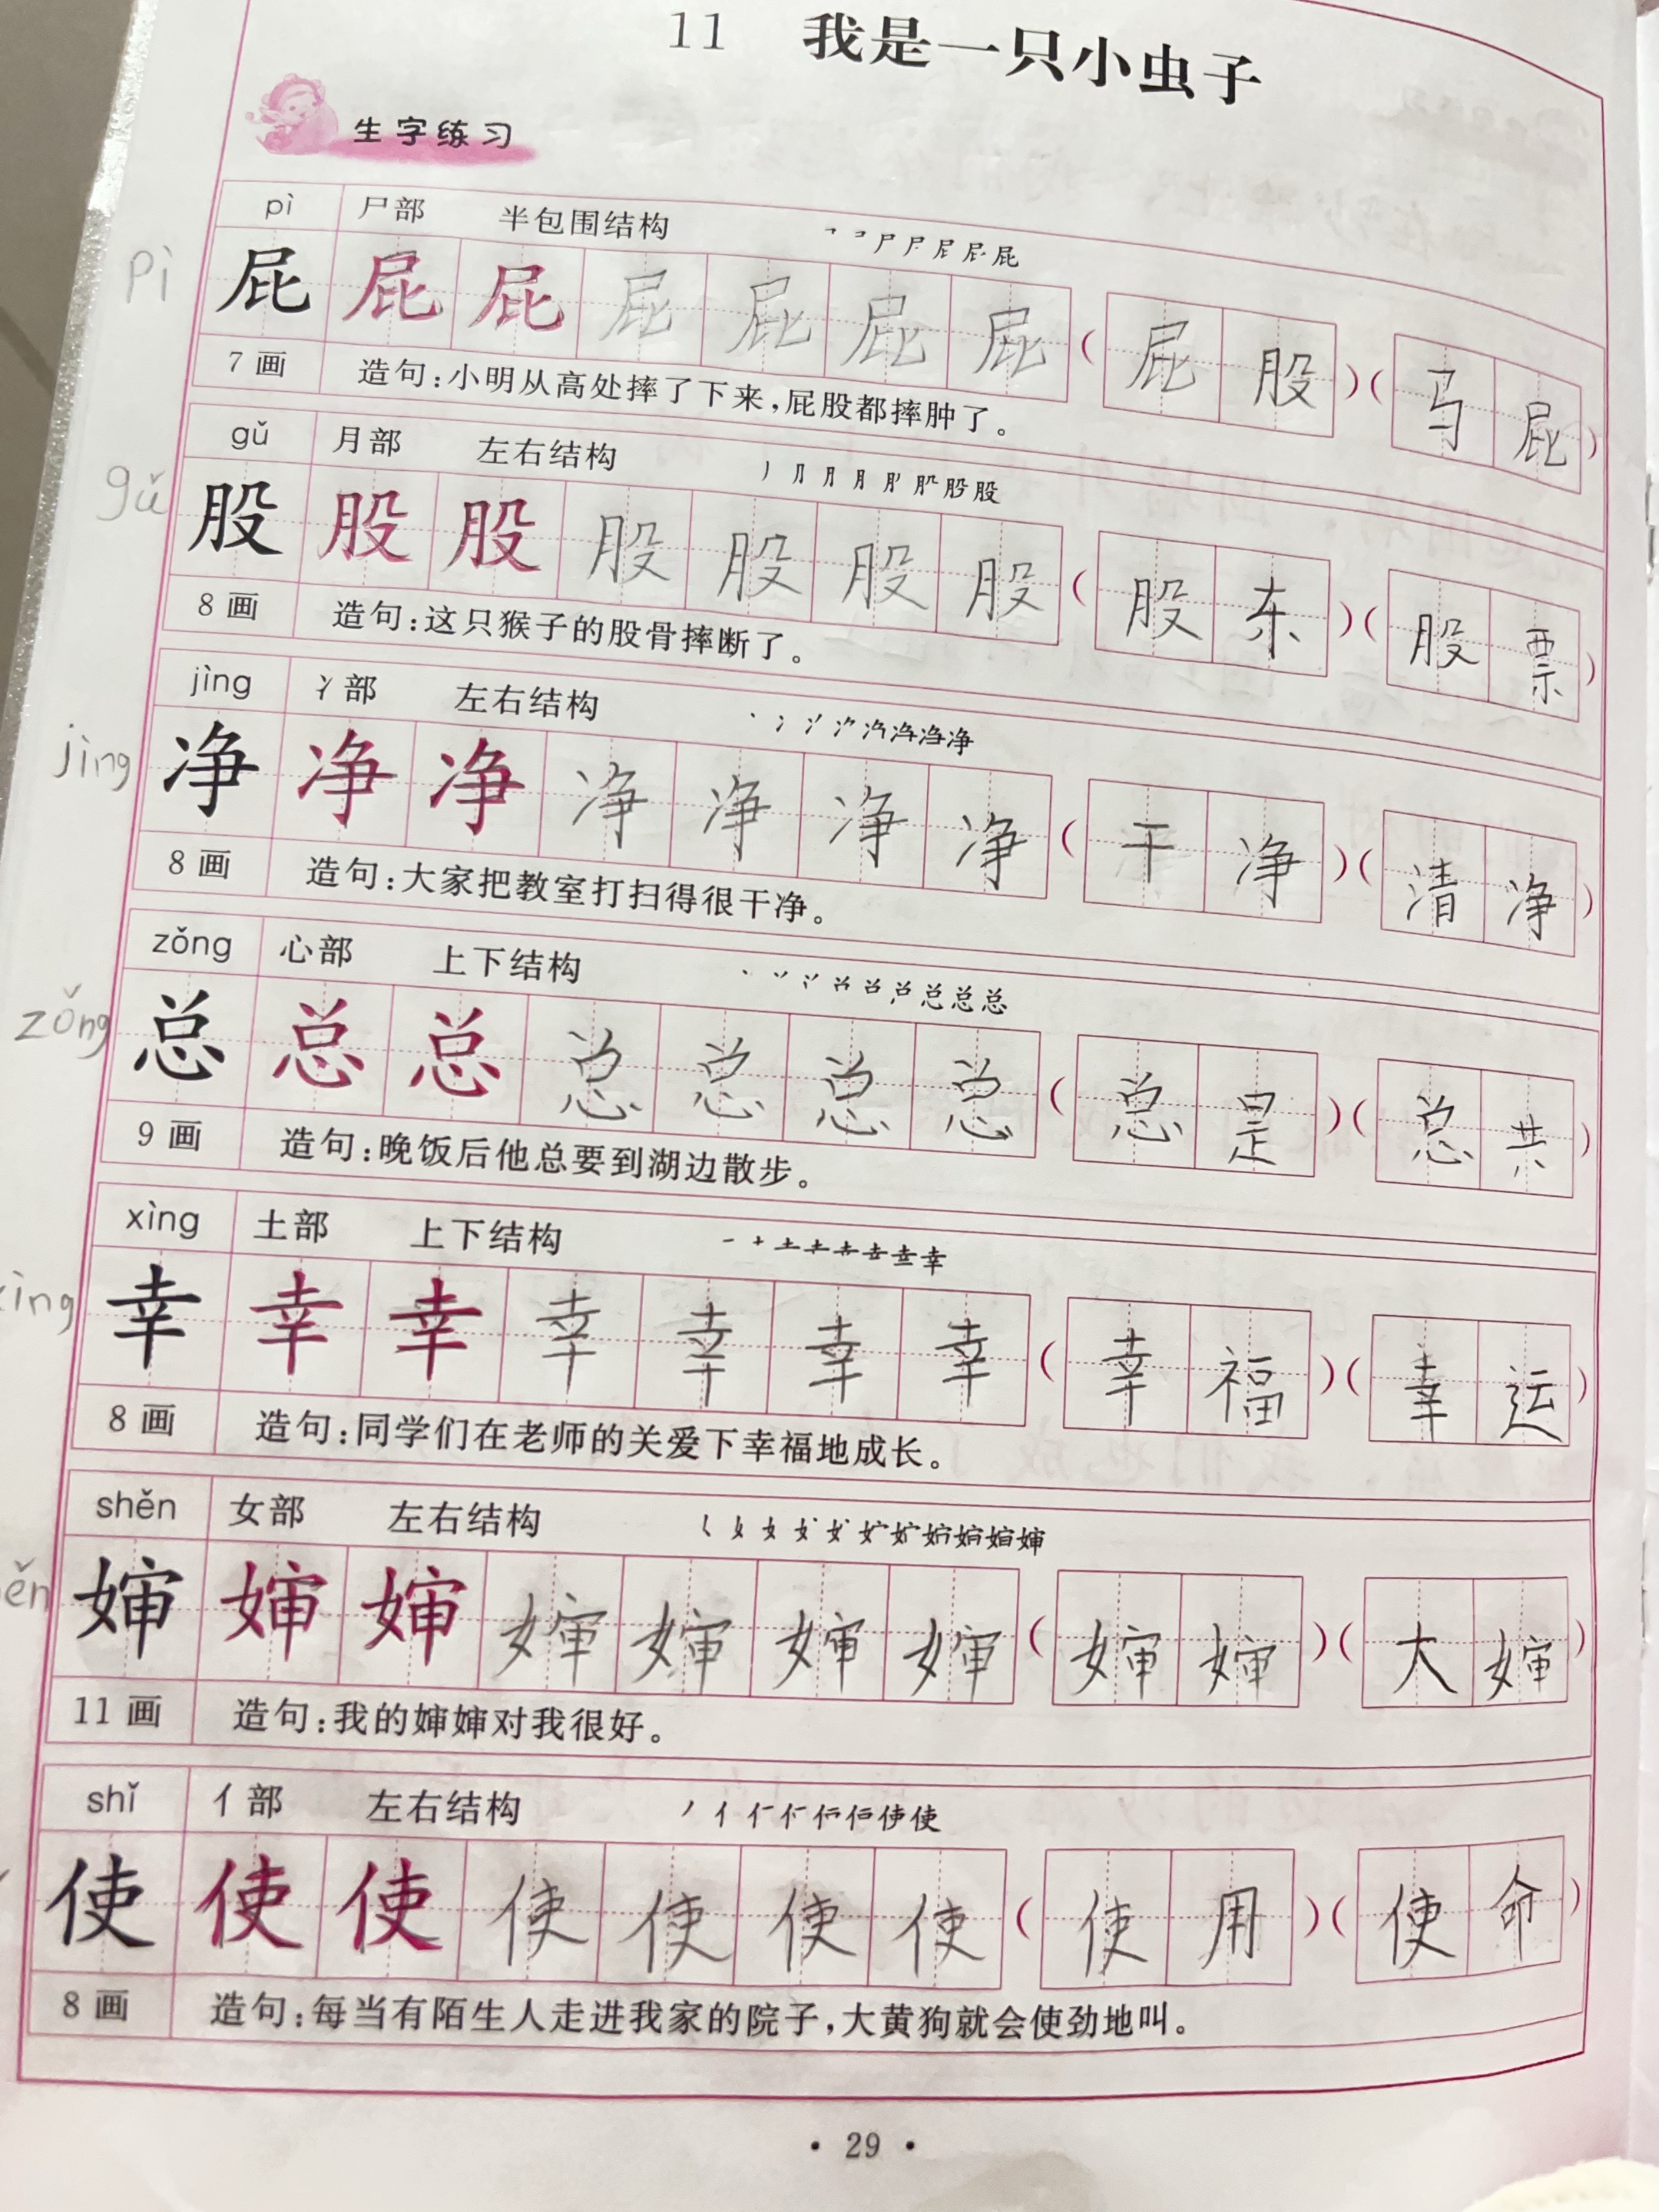 11 我是一只小虫子
生字练习
pì 尸部 半包围结构
pì 屁 屁 屁 屁 屁 屁 屁 (屁股)(马屁)
7画 造句:小明从高处摔了下来,屁股都摔肿了。
gǔ 月部 左右结构
gǔ 股 股 股 股 股 股 股 (股东)(股票)
8画 造句:这只猴子的股骨摔断了。
jìng 冫部 左右结构
jìng 净 净 净 净 净 净 净 (干净)(清净)
8画 造句:大家把教室打扫得很干净。
zǒng 心部 上下结构
zǒng 总 总 总 总 总 总 总 (总是)(总共)
9画 造句:晚饭后他总要到湖边散步。
xìng 土部 上下结构
ìng 幸 幸 幸 幸 幸 幸 幸 (幸福)(幸运)
8画 造句:同学们在老师的关爱下幸福地成长。
shěn 女部 左右结构
ěn 婶 婶 婶 婶 婶 婶 婶 (婶婶)(大婶)
11画 造句:我的婶婶对我很好。
shǐ 亻部 左右结构
使 使 使 使 使 使 使 (使用)(使命)
8画 造句:每当有陌生人走进我家的院子,大黄狗就会使劲地叫。
· 29 ·